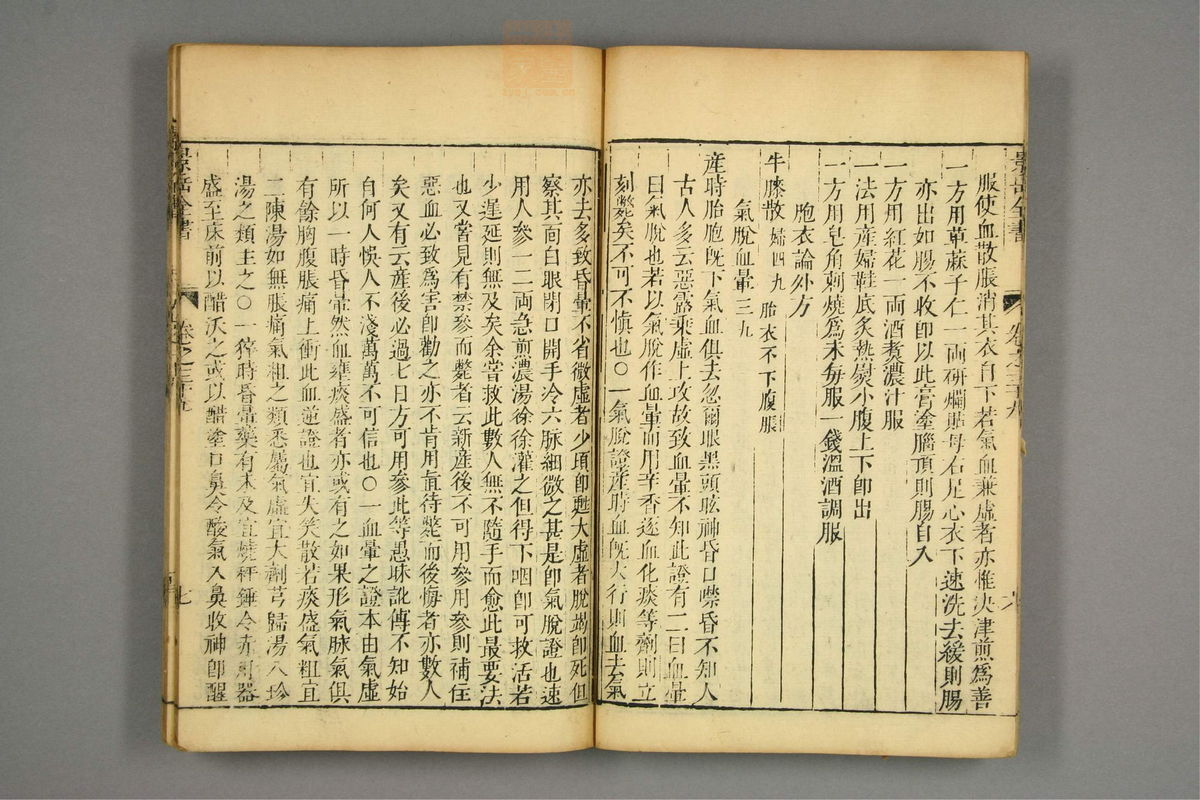 景岳全書
卷之三十九
六
服使血散脹消其衣自下若氣血兼虛者亦惟決津煎為善
一方用萆蔴子仁一両研爛貼母右足心衣下速洗去緩則腸
亦出如腸不收卽以此膏塗腦頂則腸自入
一方用紅花一両酒煑濃汁服
一法用産婦鞋底炙熱熨小腹上下卽出
一方用皂角刺燒為末每服一錢溫酒調服
胞衣論外方
牛膝散 婦四九 胎衣不下腹脹
氣脫血暈 三九
産時胎胞旣下氣血俱去忽爾眼黑頭眩神昏口噤昏不知人
古人多云惡露乘虛上攻故致血暈不知此證有二曰血暈
曰氣脫也若以氣脫作血暈而用辛香逐血化痰等劑則立
刻斃矣不可不慎也○一氣脫證産時血旣大行則血去氣
亦去多致昏暈不省微虛者少頃卽甦大虛者脫竭卽死但
察其面白眼閉口開手冷六脉細微之甚是卽氣脫證也速
用人參一二両急煎濃湯徐徐灌之但得下咽卽可救活若
少遲延則無及矣余嘗救此數人無不隨手而愈此最要法
也又嘗見有禁參而斃者云新産後不可用參用參則補住
惡血必致為害卽勸之亦不肯用直待斃而後悔者亦數人
矣又有云産後必過七日方可用參此等愚昧訛傳不知始
自何人悞人不淺萬萬不可信也○一血暈之證本由氣虛
所以一時昏暈然血壅痰盛者亦或有之如果形氣脉氣俱
有餘胸腹脹痛上衝此血逆證也宜失笑散若痰盛氣粗宜
二陳湯如無脹痛氣粗之類悉屬氣虛宜大劑芎歸湯八珍
湯之類主之○一猝時昏暈藥有未及宜燒秤錘令赤用器
盛至床前以醋沃之或以醋塗口鼻令酸氣入鼻收神卽醒
景岳全書
卷之三十九
七